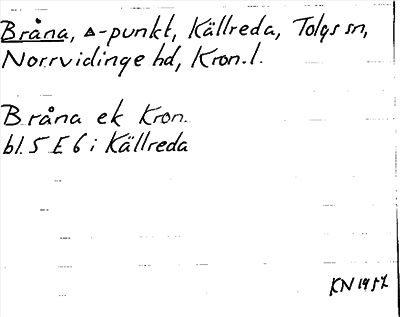 Bråna, ▵-punkt, Källreda, Tolgs sn,
Norrvidinge hd, Kron. l.
Bråna ek Kron.
bl. 5 E 6 i Källreda
KN 1957